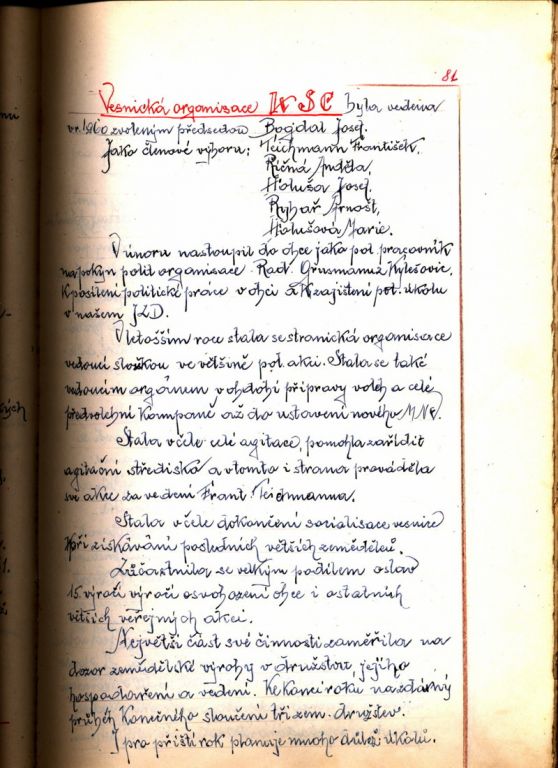 81
Vesnická organisace KSČ byla vedena
v r. 1960 zvoleným předsedou Bogdal Josef.
Jako členové výboru: Teichmann František,
Řičná Anděla,
Holuša Josef,
Rybař Arnošt,
Holušová Marie.
V únoru nastoupil do obce jako pol. pracovník
na pokyn polit organisace Rad. z Kylešovic,
k posílení politické práce v obci a k zajištění pol. úkolu
v našem JZD.
V letošším roce stala se stranická organisace
vedoucí složkou ve většině pol. akcí. Stala se také
vedoucím orgánem v období přípravy voleb a celé
předvolební kampaně až do ustavení nového MNV.
Stala v čele celé agitace, pomohla zařídit
agitační středisko a v tomto i strana prováděla
své akce za vedení Frant. Teichmanna.
Stala v čele dokončení socialisace vesnice
při získávání posledních větších zemědělců.
Zúčastnila se velkým podílem oslav
15. výročí výročí osvobození obce i ostatních
větších veřejných akcí.
Největší část své činnosti zaměřila na
dozor zemědělské výroby v družstvu, jejího
hospodaření a vedení. Ke konci roku na zdárný
průběh konečného sloučení tří zem. družstev.
I pro příští rok planuje mnoho úkolů.